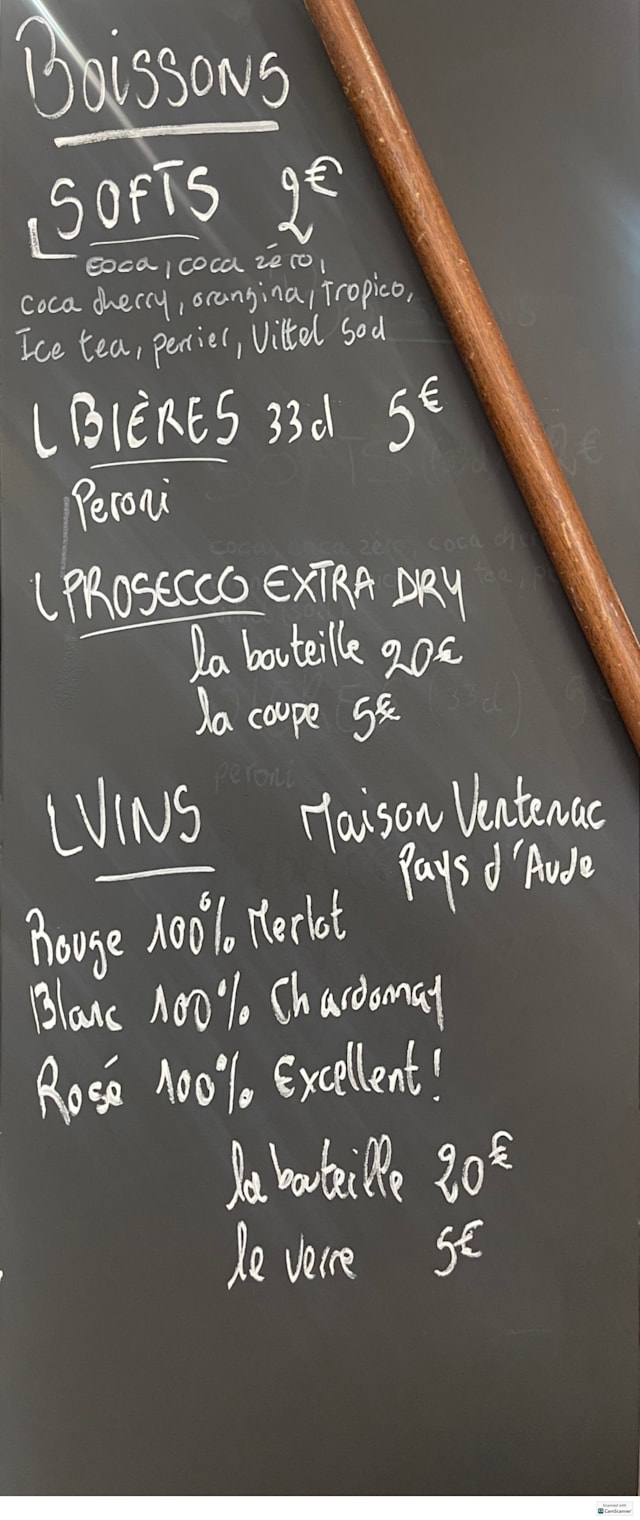 BOISSONS
SOFTS 2€
coca, coca zéro,
coca cherry, orangina, Tropico,
Ice tea, perrier, Vittel 50cl
BIÈRES 33cl 5€
Peroni
PROSECCO EXTRA DRY
la bouteille 20€
la coupe 5€
VINS Maison Ventenac
Pays d'Aude
Rouge 100% Merlot
Blanc 100% Chardonnay
Rosé 100% Excellent!
la bouteille 20€
le verre 5€
Scanned with
CamScanner